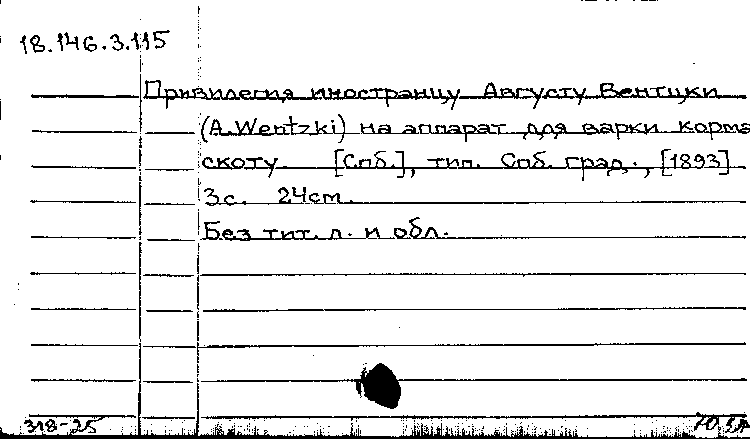 18.146.3.115
Привилегия иностранцу Августу Вентцки
(A.Wentzki) на аппарат для варки корма
скоту. [Спб.], тип. Спб. град., [1893]
3с. 24см.
Без тит. л. и обл.
318-25